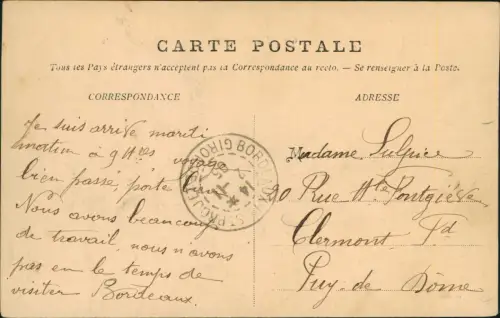 CARTE POSTALE
Tous les Pays étrangers n'acceptent pas la Correspondance au recto. — Se renseigner à la Poste.
CORRESPONDANCE
Je suis arrivé mardi
matin à 9 Hres voyage
bien passé, porte bien
Nous avons beaucoup
de travail, nous n'avons
pas eu le temps de
visiter Bordeaux.
ADRESSE
Madame Sulpice
20 Rue Hte Pontgiève
Clermont Fd
Puy-de Dôme
BORDEAUX ST PROJET
GIRONDE
14